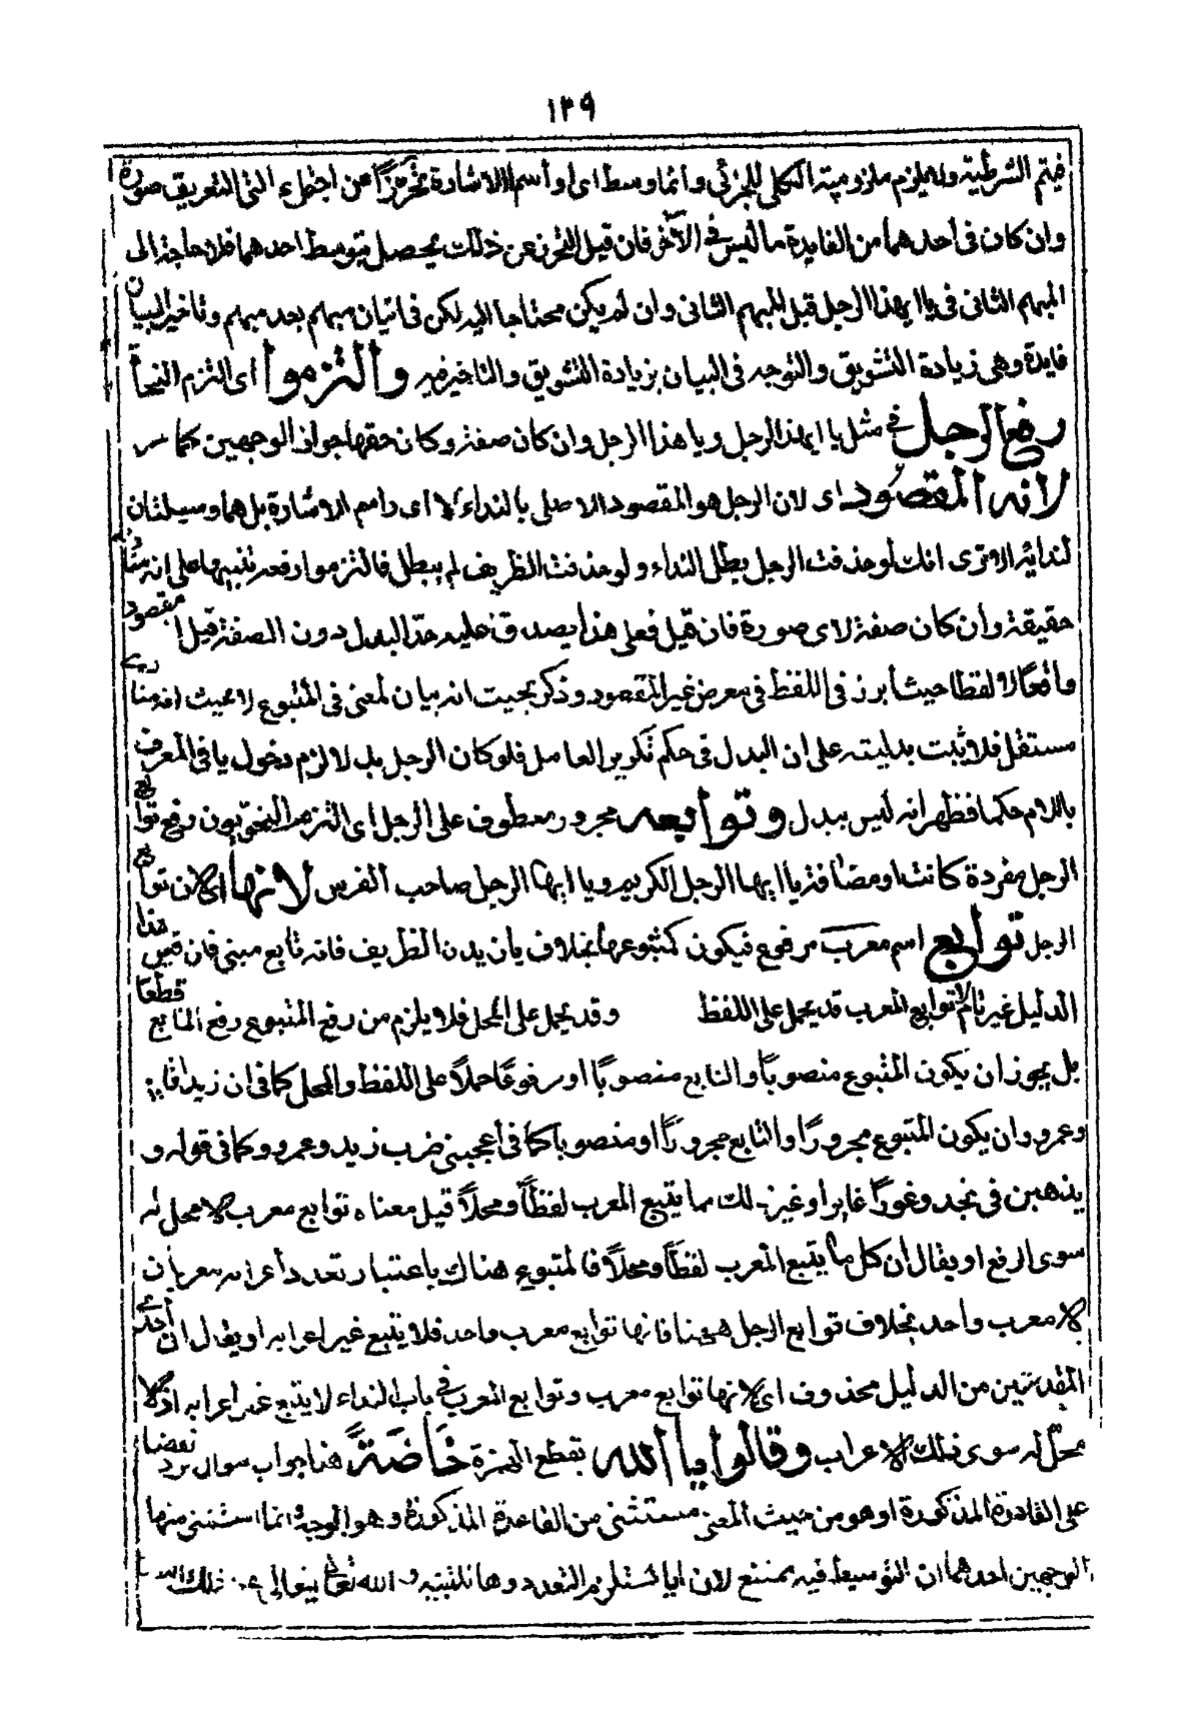 ١٣٩
فيتم الشرطية ولا يلزم ملزومية الكلي للجزئي وانما وسط اى او أسم الاشارة تحرّزًا عن اجتماء التى التعريف صورة
وان كان فى احدهما من الفايدة ما ليس فى الآخر فان قيل التحرز عن ذلك يحصل بتوسط احدهما فلا حاجة الى
المبهم الثانى فى يا ايهذا الرجل قيل المبهم الثانى وان لم يكن محتاجا اليه لكن فى اتيان مبهم بعد مبهم وتاخير البيان
فايدة وهى زيادة التشويق والتوجه فى البيان بزيادة التشويق والتاخير فيه والتزموا اى التزم النحاة
رفع الرجل فى مثل يا ايهذا الرجل ويا هذا الرجل وان كان صفة وكان حقها جواز الوجهين كما مر
لانه المقصود اى لان الرجل هو المقصود الاصلى بالنداء لا اى واسم الاشارة بل هما وسيلتان
لندائه الا ترى انك لو حذفت الرجل بطل النداء ولو حذفت الظريف لم يبطل فالتزموا رفعه تنبيها على انه منادى
حقيقة وان كان صفة لاى صورة فان قيل فعلى هذا يصدق عليه حدّ البدل دون الصفة قيل مقصود
واقعًا لا لفظا حيث أبرز فى اللفظ فى معرض غير المقصود وذكر بحيث انه بيان لمعنى فى المتبوع لا بحيث انه منادى
مستقل فلا يثبت بدليته على ان البدل فى حكم تكرير العامل فلو كان الرجل بدلا لزم دخول يا فى المعرف
باللام حكما فظهر انه ليس ببدل وتوابعه مجرور معطوف على الرجل اى التزم النحويون رفع توابع
الرجل مفردة كانت او مضافة يا ايها الرجل الكريم ويا ايها الرجل صاحب الفرس لانها اى لان توابع
الرجل توابع اسم معرب مرفوع فيكون كمتبوعها بخلاف يا زيدن الظريف فانه تابع مبنى فان قيل هذا
الدليل غير تام لان توابع المعرب قد يحمل على اللفظ وقد يحمل على المحل فلا يلزم من رفع المتبوع رفع التابع قطعًا
بل يجوز ان يكون المتبوع منصوبًا والتابع منصوبًا او مرفوعًا حملاً على اللفظ والمحل كما فى ان زيدا قايم
وعمرو وان يكون المتبوع مجرورًا والتابع مجرورًا او منصوبا كما فى أعجبنى ضرب زيد وعمرو وكما فى قوله و
يذهبن فى نجد وغورًا غايرا وغير ذلك مما يتبع المعرب لفظًا ومحلاً قيل معناه توابع معرب لا محل له
سوى الرفع او يقال ان كل ما يتبع المعرب لفظًا ومحلاً فالمتبوع هناك باعتبار تعدد أعرابه معربان
لا معرب واحد بخلاف توابع الرجل ههنا فانها توابع معرب واحد فلا يتبع غير اعرابه او يقال ان أحدى
المقدمتين من الدليل محذوف اى لانها توابع معرب وتوابع المعرب فى باب النداء لا يتبع غير اعرابه اذ لا
محل له سوى ذلك الاعراب وقالوا يا ألله بقطع الهمزة خاصّة هذا جواب سوال يرد نقضا
على القاعدة المذكورة او هو من حيث المعنى مستثنى من القاعدة المذكورة وهو الوجه انما استثنى منها
لوجهين احدهما ان التوسيط فيه ممتنع لان ايا تستلزم التعدد وها للتنبيه والله تعالى يتعالى عن ذلك